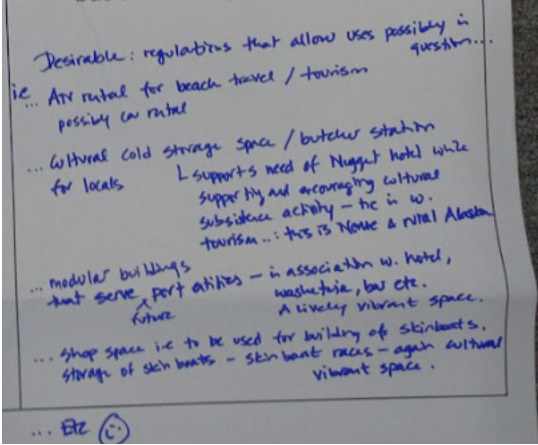 Desirable: regulations that allow uses possibly in
question...
ie
... ATV rental for beach travel / tourism
possibly car rental
... Cultural cold storage space / butcher station
for locals
└ supports need of Nugget hotel while
supporting and encouraging cultural
subsistence activity - tie in w.
tourism...: this is Nome & rural Alaska
... modular buildings
that serve ^ port - in association w. hotel,
future
washeteria, bar etc.
A lively vibrant space.
... shop space i.e to be used for building of skinboats,
storage of skin boats - skin boat races - again cultural
vibrant space.
... Etc ☺